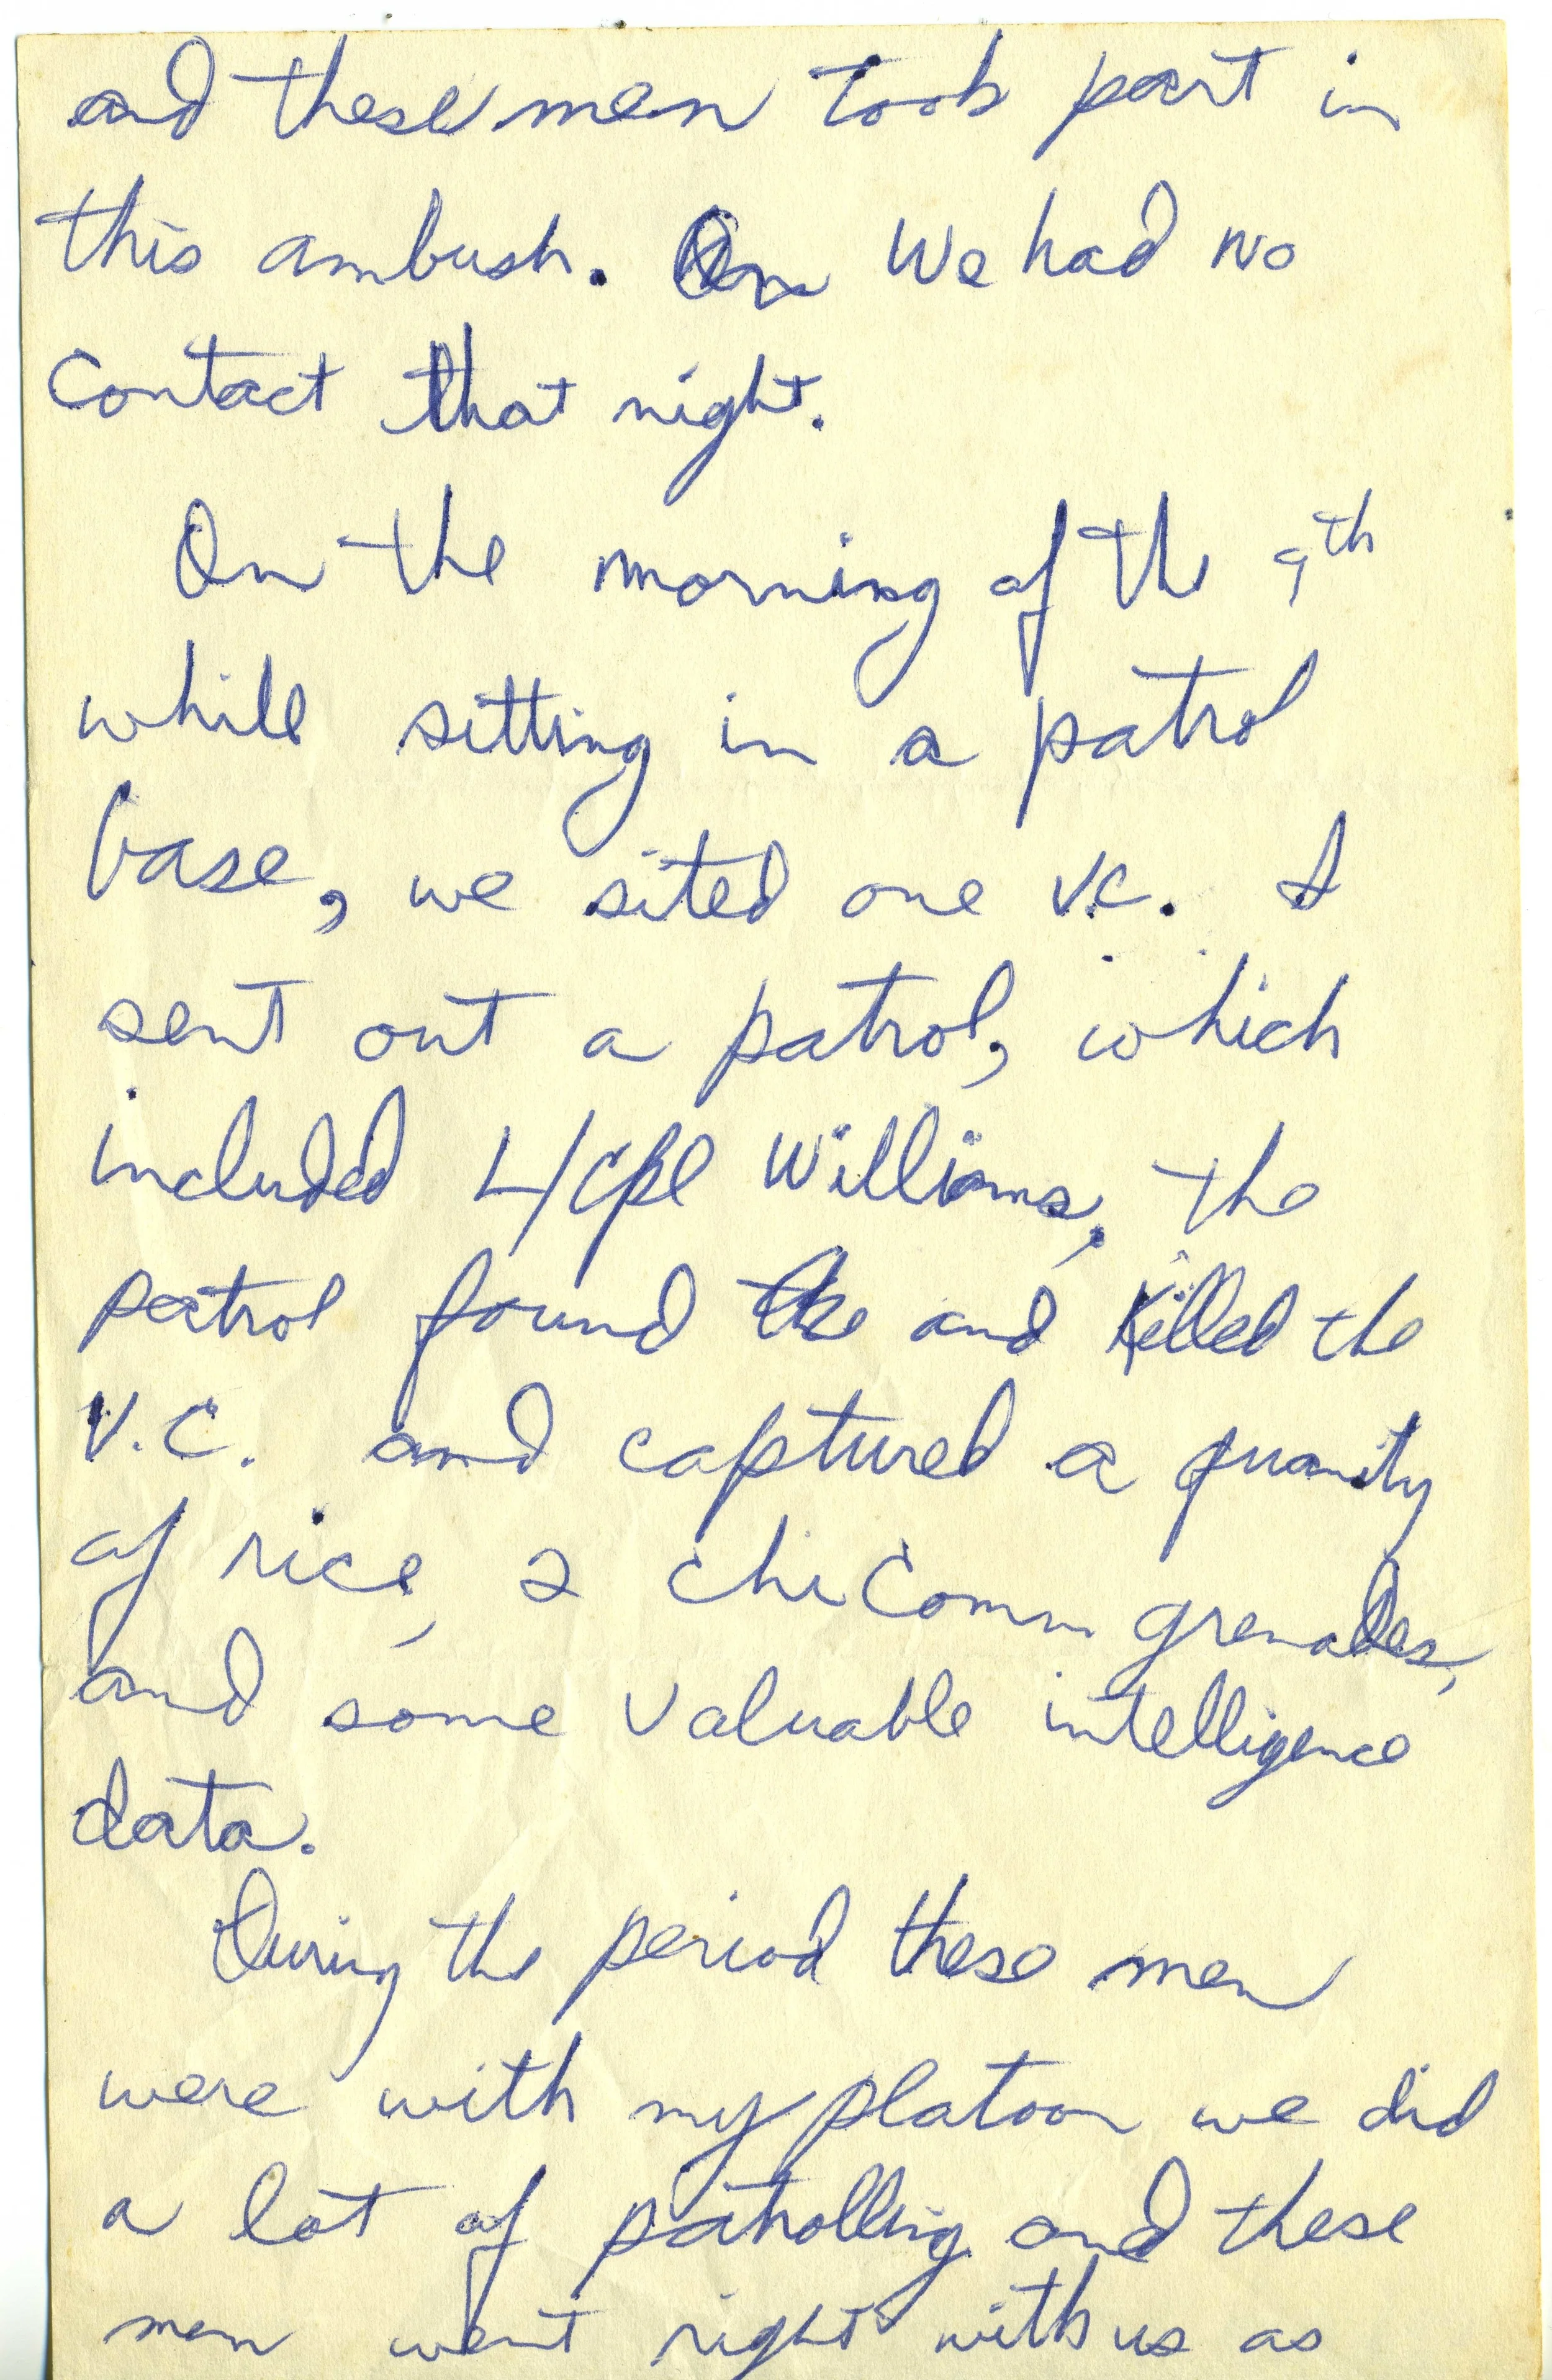 and these men took part in
this ambush. On We had no
contact that night.
On the morning of the 9th
while sitting in a patrol
base, we sited one V.C. I
sent out a patrol, which
included L/Cpl Williams, the
patrol found the and killed the
V.C. and captured a quanity
of rice, 2 chiComm grenades,
and some valuable intelligence
data.
During the period these men
were with my platoon we did
a lot of patrolling and these
men went right with us as